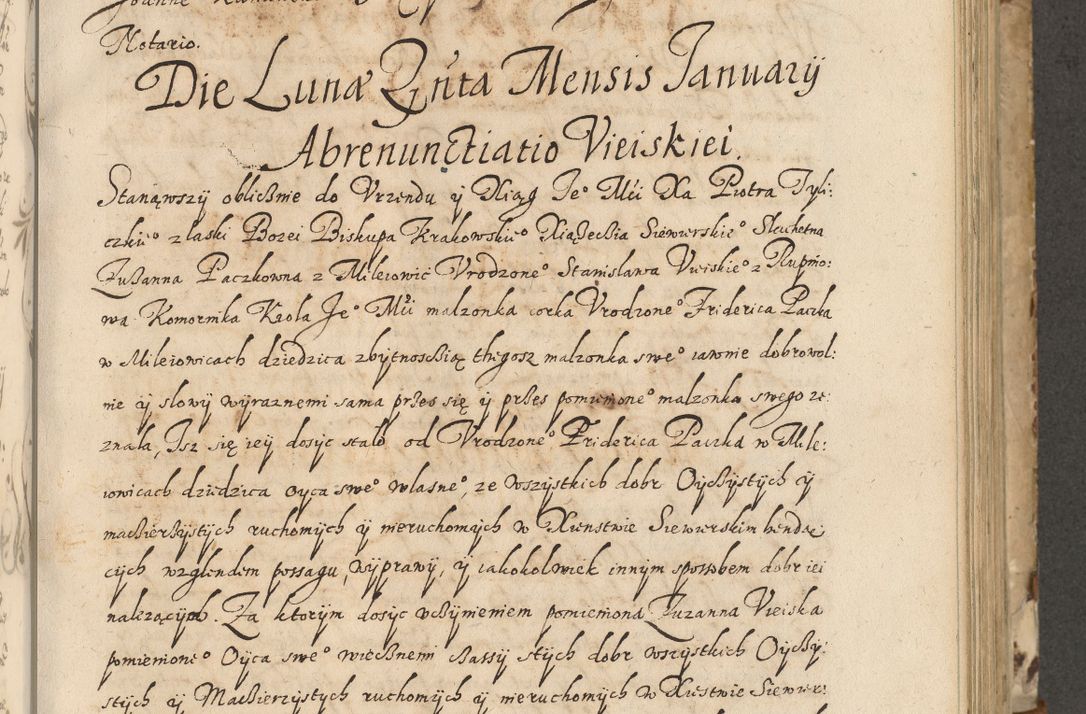 Notario.
Die Lunæ Qnta Mensis Januarij
Abrenunctiatio Vieiskiei.
Stanąwszÿ oblicßnie do Vrzendu ÿ Xiąg Je° Mći Xa Piotra Tyli:
czkie° z laski Bozei Biskupa Krakowskie° Xiążecßia Siewierskie° Slachetna
Zußanna Paczkowna z Mileiowic Vrodzone° Stanislawa Vieiskie° z Rupnio:
wa Komornika Krola Je° Mći malzonka corka Vrodzone° Friderica Paczka
w Mileiowicach dziedzica zbÿtnoscßią thegosz malzonka swe° iawnie dobrowol:
nie ÿ slowÿ wÿraznemi sama przes się ÿ przes pomienione° malzonka swego ze:
znała, Jsz się ieÿ dosÿc stało od Vrodzone° Friderica Paczka w Mile:
iowicach dziedzica oÿca swe° własne°, ze wszÿstkich dobr Oÿcßÿstÿch ÿ
macßierßÿstÿch ruchomÿch ÿ nieruchomÿch w Xienstwie Siewierskim bendą:
cÿch wzglendem possagu, wÿprawÿ, ÿ iakokolwiek innÿm sposobem dobr iei
nalezącÿch. Za ktorÿm dosÿc vcßÿnieniem pomieniona Zuzanna Vieiska
pomienione° Oÿca swe° wiecßnemi cßassÿ stÿch dobr wszÿstkich Oÿcßÿ:
stÿch ÿ Macßierzÿstÿch ruchomÿch ÿ nieruchomÿch w Xiestwie Siewier: